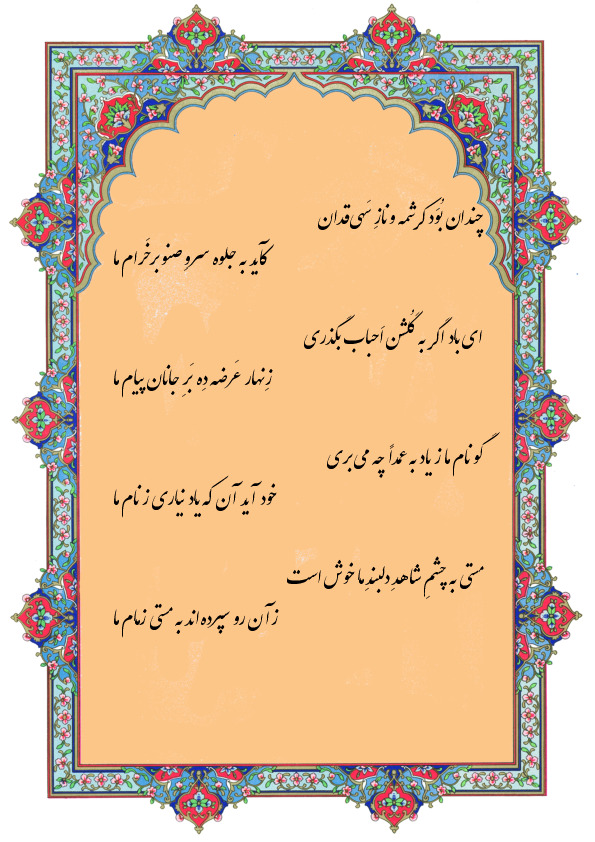 چندان بُوَد کرشمه و نازِ سَهی‌قدان
کآید به جلوه سرو صنوبرخَرام ما
ای باد اگر به گلشن اَحباب بگذری
زِنهار عَرضه دِه بَرِ جانان پیام ما
گو نام ما ز یاد به عمداً چه می‌بری
خود آید آن که یاد نیاری ز نام ما
مستی به چشمِ شاهدِ دلبندِ ما خوش است
زآن رو سپرده‌اند به مستی زمام ما